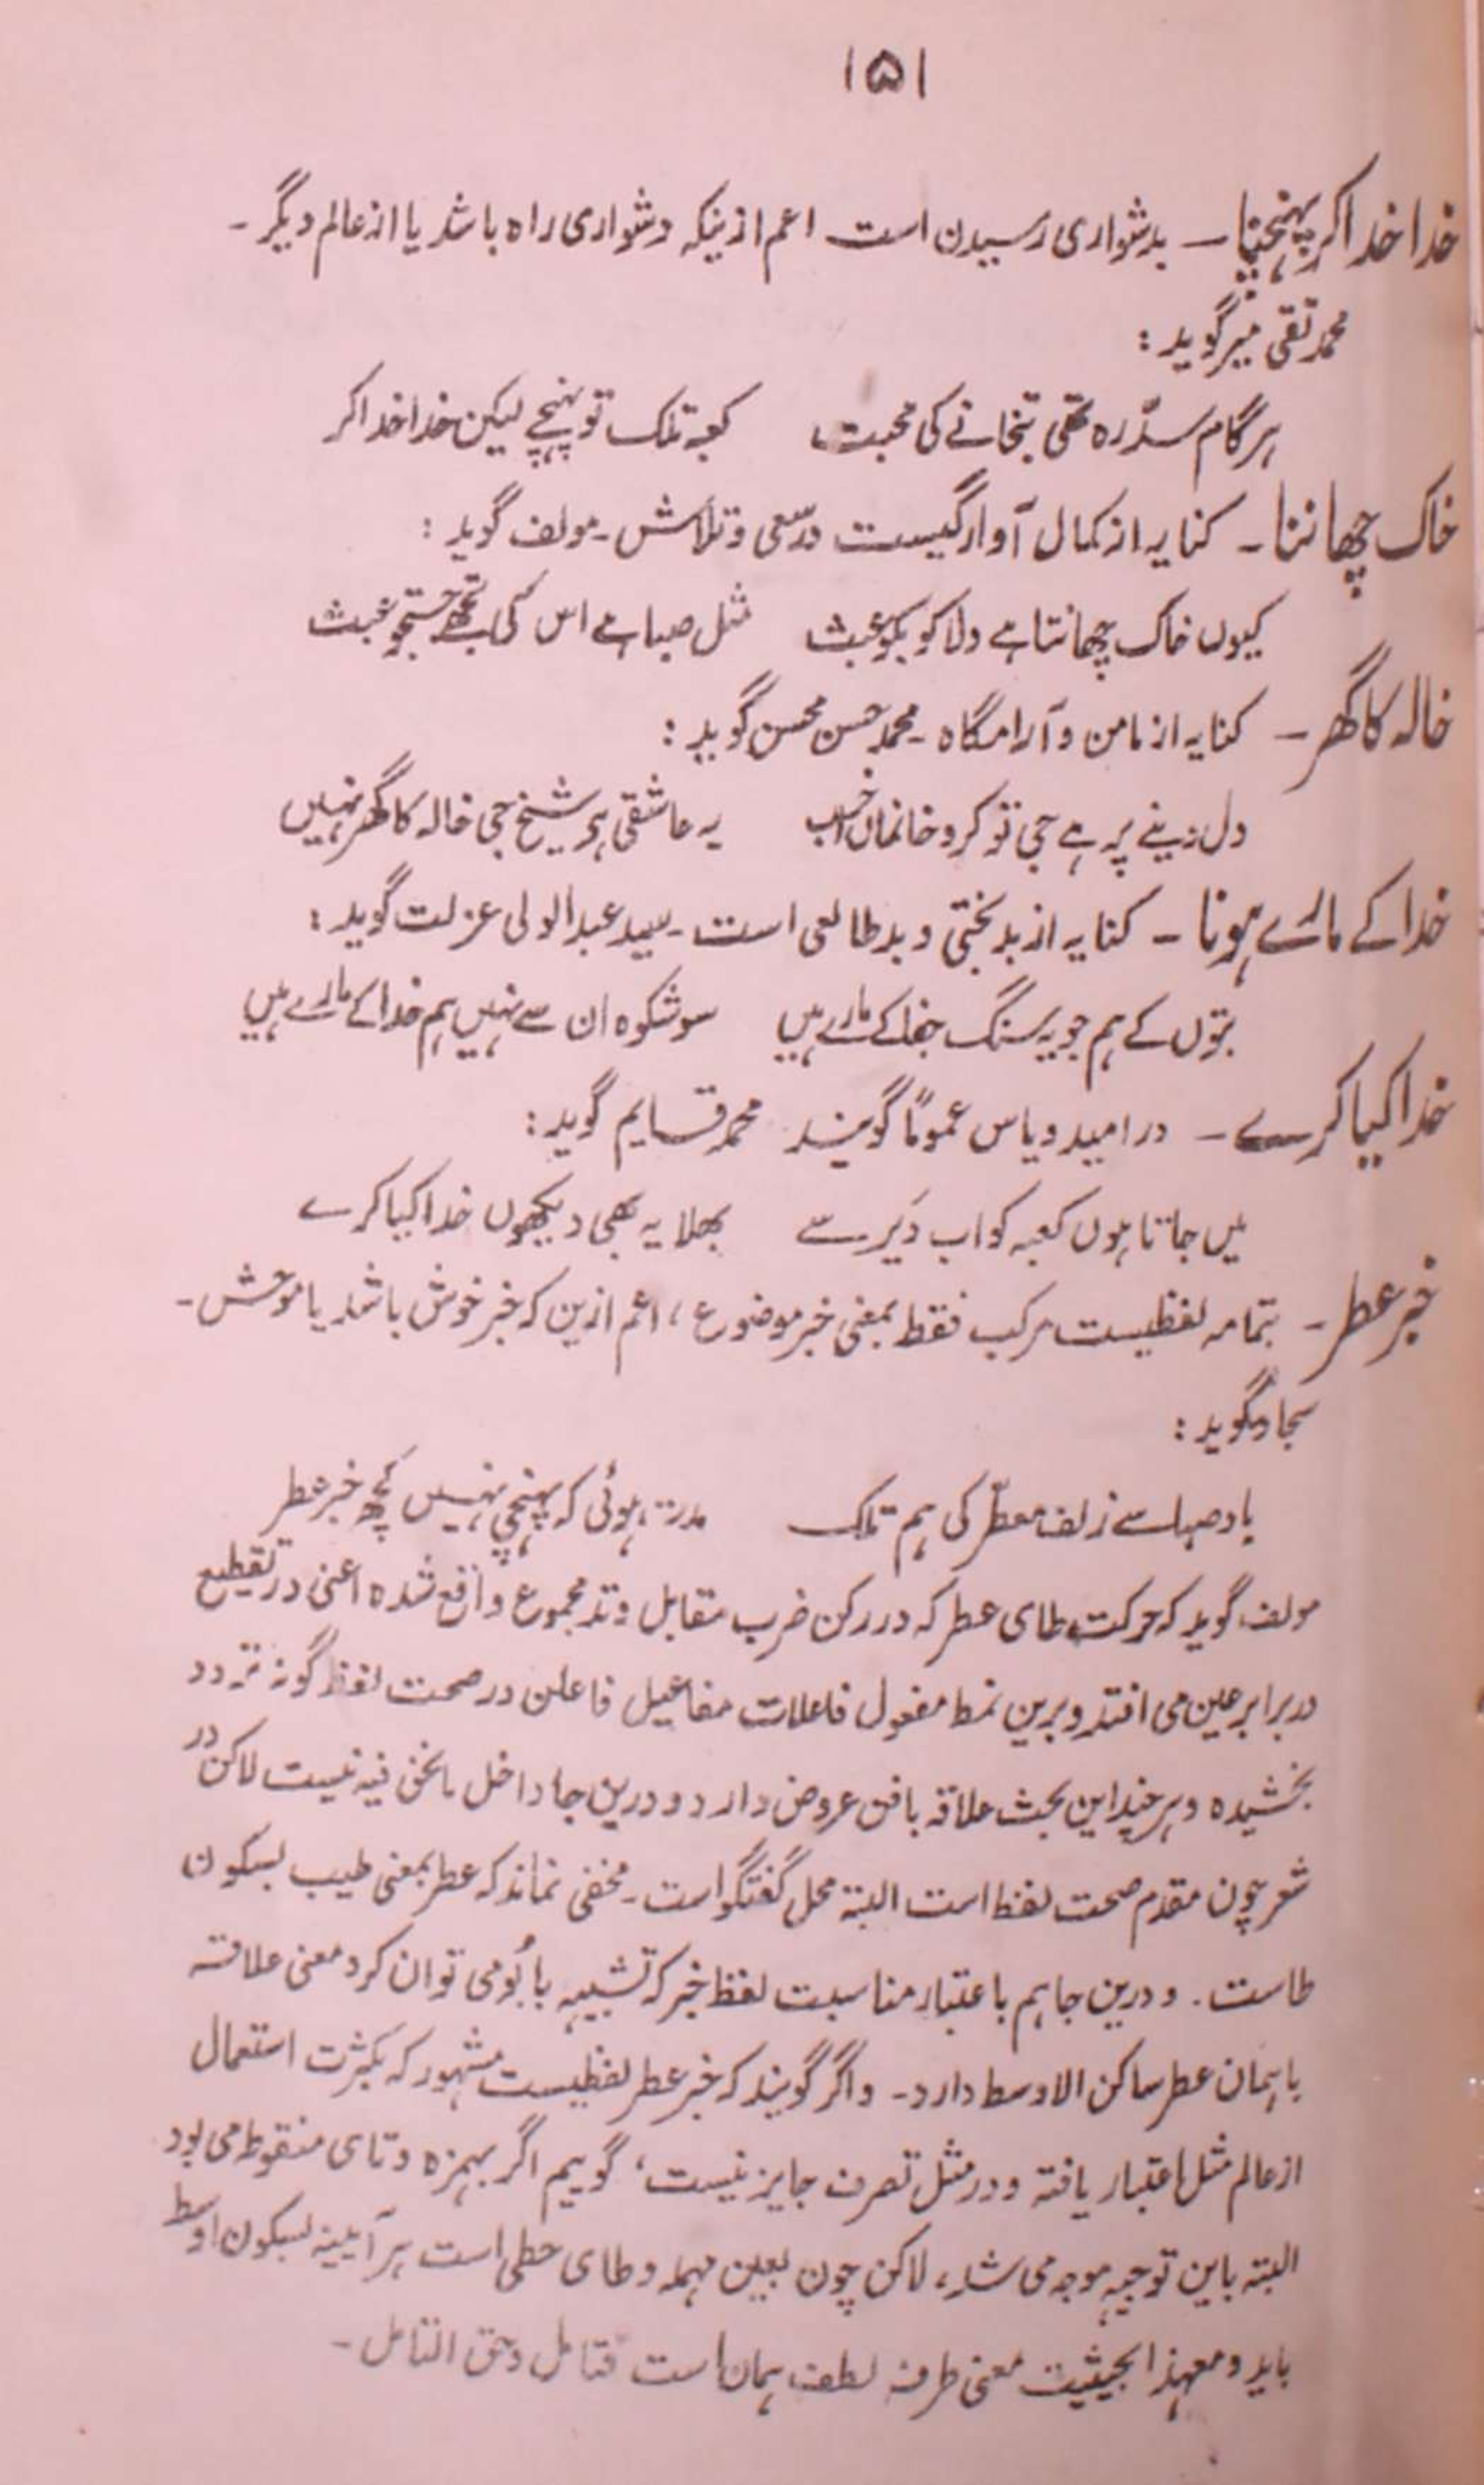 ۱۵۱
خدا خدا کر پہنچنا ـ بدشواری رسیدن است اعم ازینکہ دشواری راہ باشد یا از عالم دیگر ـ
محمد تقی میر گوید :
ہر گام سدِّ رہ تھی بتخانے کی محبت کعبہ تلک تو پہنچے لیکن خدا خدا کر
خاک چھاننا ـ کنایہ از کمال آوارگیست در سعی و تلاش ـ مولف گوید :
کیوں خاک چھانتا ہے دلا کو بکو عبث مثل صبا ہے اس کی تجھے جستجو عبث
خالہ کا گھر ـ کنایہ از مامن و آرامگاہ ـ محمد حسن محسن گوید :
دل دینے پر ہے جی تو کرو خانماں خراب یہ عاشقی ہے شیخ جی خالہ کا گھر نہیں
خدا کے مارے ہونا ـ کنایہ از بدبختی و بد طالعی است ـ سید عبدالولی عزلت گوید :
بتوں کے ہم جو یہ سنگ جفا کے مارے ہیں سو شکوہ ان سے نہیں ہم خدا کے مارے ہیں
خدا کیا کرے ـ در امید و یاس عموماً گویند محمد قایم گوید :
میں جاتا ہوں کعبہ کو اب دَیر سے بھلا یہ بھی دیکھوں خدا کیا کرے
خبر عطر ـ بتمامہ لفظیست مرکب فقط بمعنی خبر موضوع ، اعم ازین کہ خبر خوش باشد یا موحش ـ
سجاد گوید :
باد صبا سے زلف معطّر کی ہم تلک مدت ہوئی کہ پہنچی نہیں کچھ خبر عطر
مولف گوید کہ حرکت طای عطر کہ در رکن ضرب مقابل وتد مجموع واقع شدہ اعنی در تقطیع
در برابر عین می افتد و برین نمط مفعول فاعلات مفاعیل فاعلن در صحت لفظ گونہ تردد
بخشیدہ و ہر چند این بحث علاقہ بافن عروض دارد و درین جا داخل مانحن فیہ نیست لاکن در
شعر چون مقدم صحت لفظ است البتہ محل گفتگو است ـ مخفی نماند کہ عطر بمعنی طیب بسکون
طاست . و درین جا ہم باعتبار مناسبت لفظ خبر کہ تشبیہہ با بُو می توان کرد معنی علاقہ
با ہمان عطر ساکن الاوسط دارد ـ و اگر گویند کہ خبر عطر لفظیست مشہور کہ بکثرت استعمال
از عالم مثل اعتبار یافتہ و در مثل تصرف جایز نیست ، گوییم اگر بہمزہ و تای منقوط می بود
البتہ باین توجیہہ موجہ می شد ، لاکن چون بعین مہملہ و طای حطی است ہر آیینہ بسکون اوسط
باید و معہذا بحیثیت معنی طرفہ لطف ہمان است فتامل وحق التامل ـ